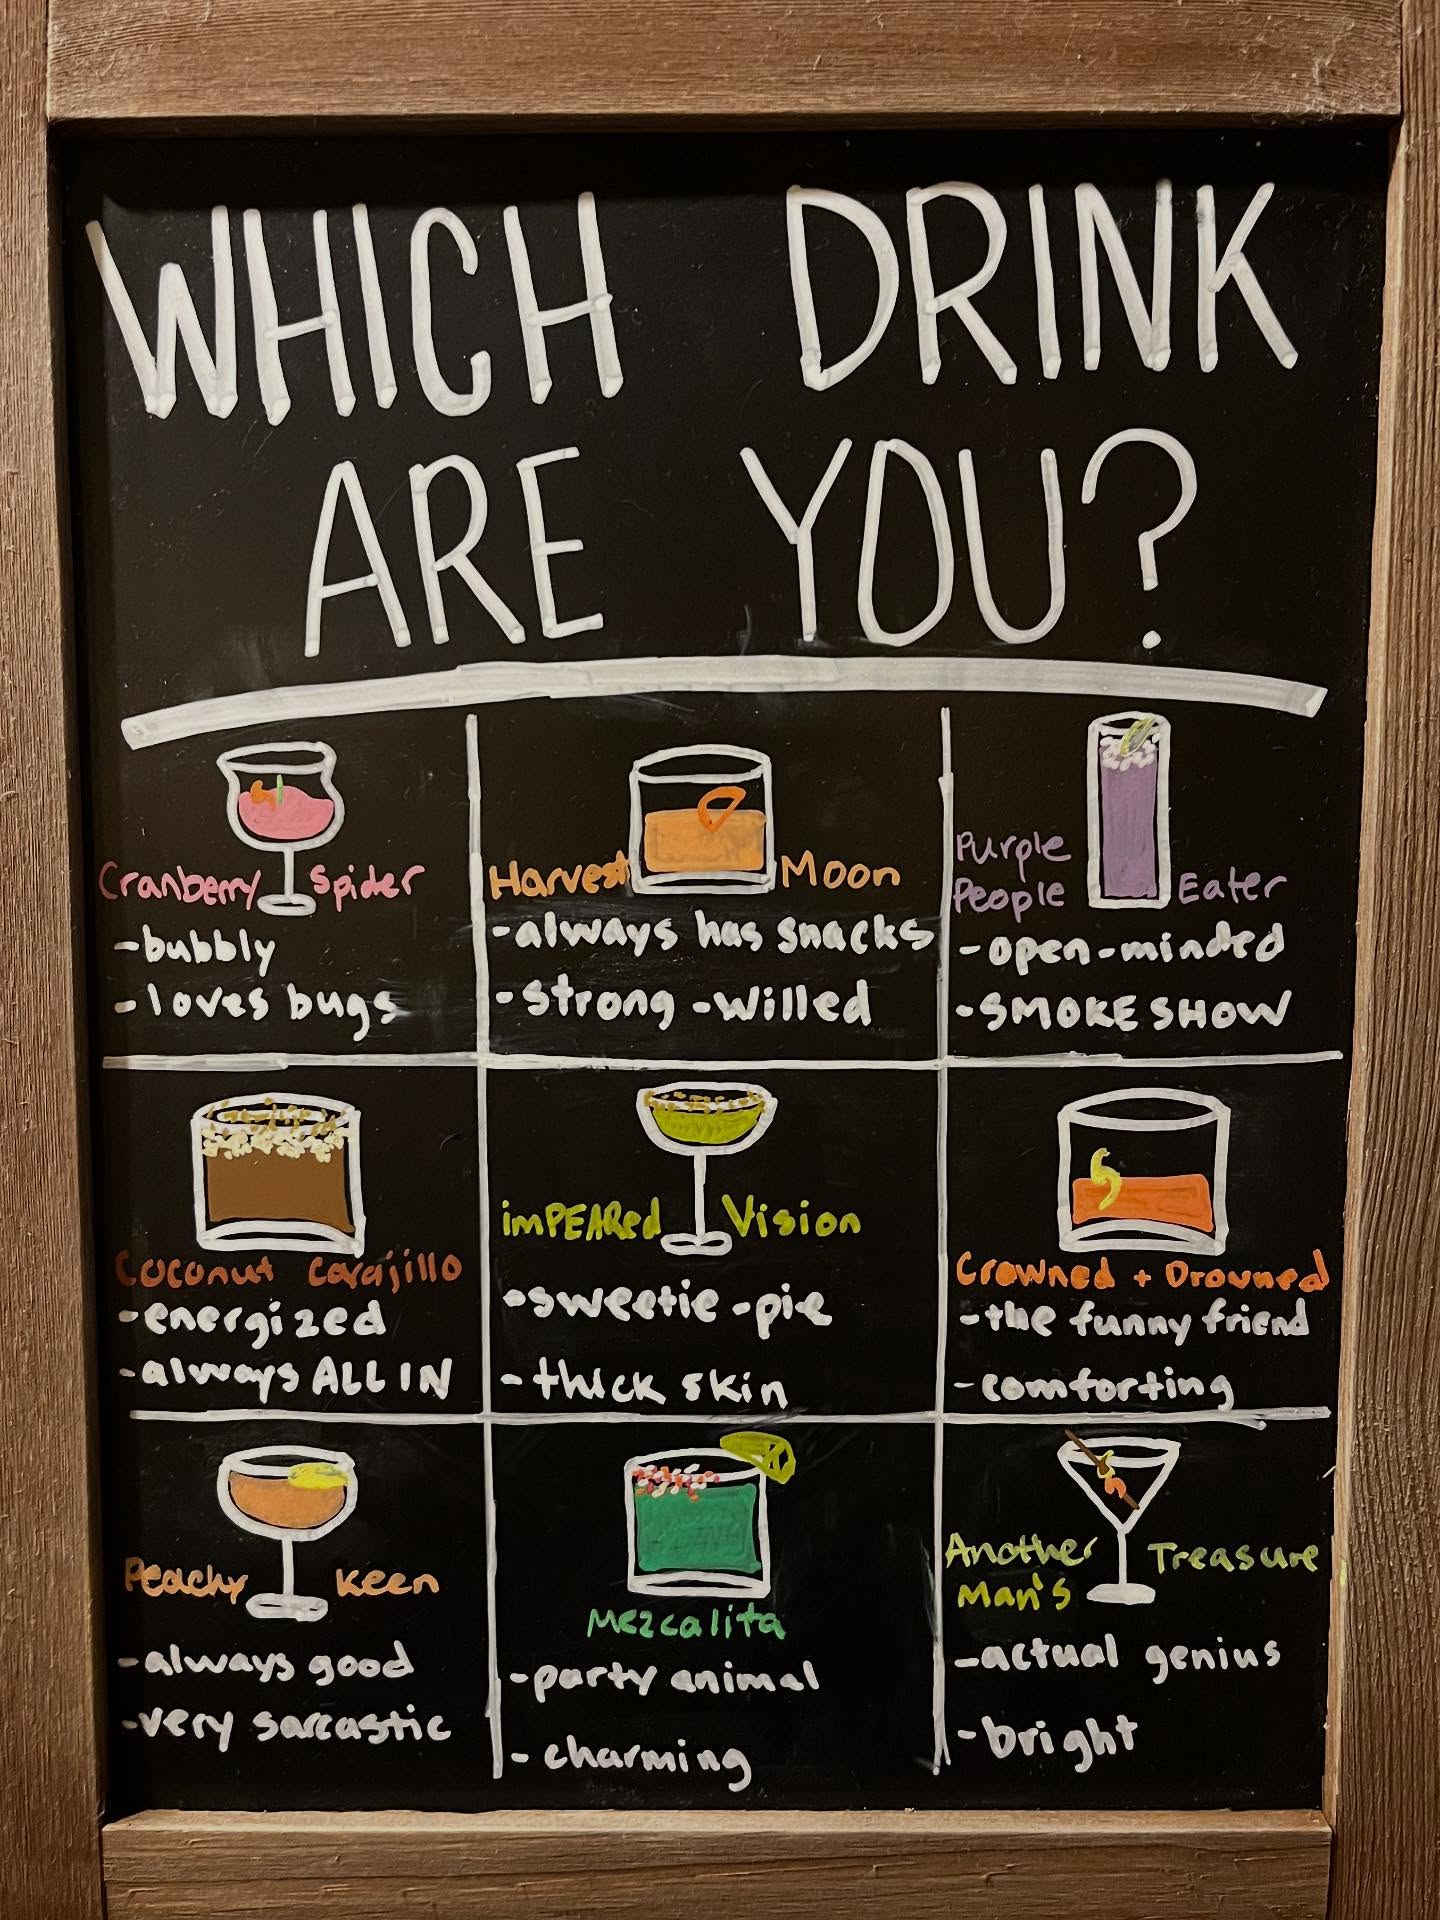 WHICH DRINK
ARE YOU?
Cranberry Spider
-bubbly
-loves bugs
Harvest Moon
-always has snacks
-strong-willed
Purple
People Eater
-open-minded
-SMOKESHOW
Coconut Carajillo
-energized
-always ALL IN
imPEARed Vision
-sweetie-pie
-thick skin
Crowned + Drowned
-the funny friend
-comforting
Peachy Keen
-always good
-very sarcastic
Mezcalita
-party animal
-charming
Another
Man's Treasure
-actual genius
-bright